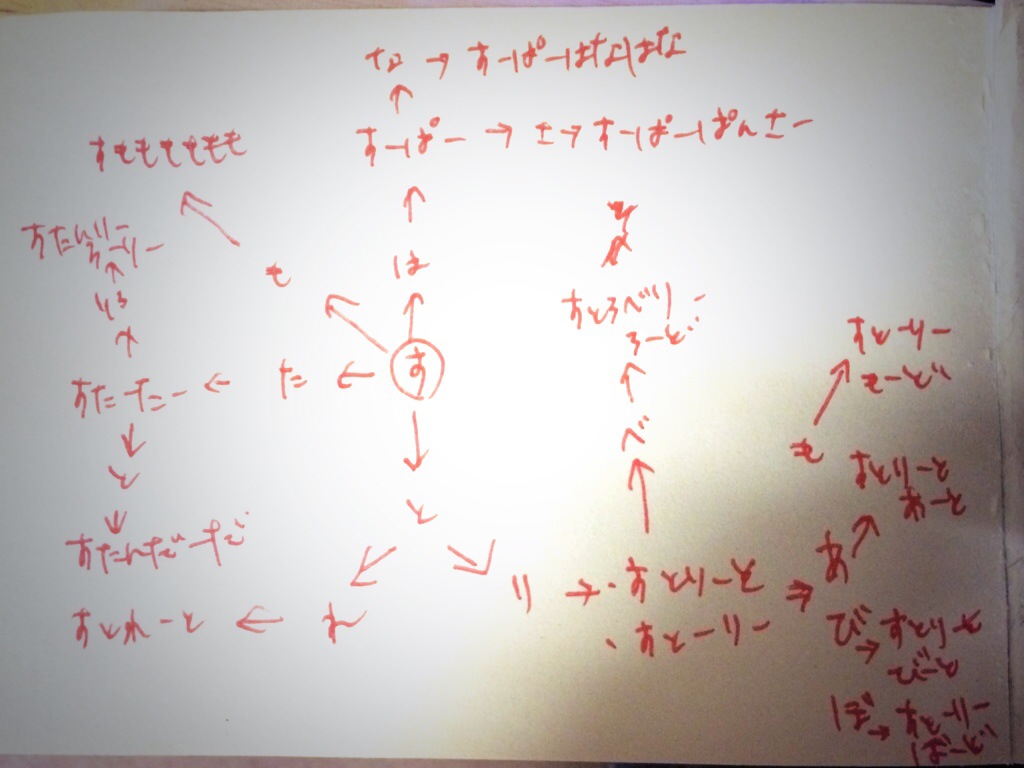 な → すーぱーはなはな
↑
すーぱー → さ → すーぱーぱんさー
すももももも
は
も
すたんりー
ろーりー
りろ
すたーたー ← た ← す
と
すたんだーだ
すとれーと ← れ
と
すとろべりー
ろーど
べ
り → ・すとりーと
・すとーりー
すとーりー
もーど
も
すとりーと
あーと
あ
び → すとりーと
びーと
ぼ → すとーりー
ぼーど